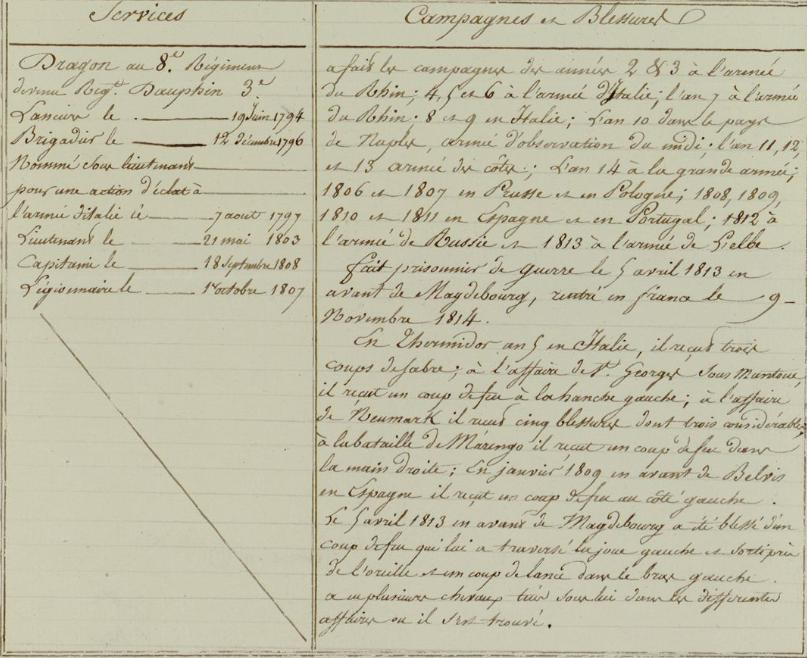 Services
Dragon au 8.e Régiment
devenu Régt. Dauphin 3.e
Lancier le 19 Juin 1794
Brigadier le 12 décembre 1796
Nommé sous lieutenant
pour une action d'éclat à
l'armée d'italie le 7 aout 1797
Lieutenant le 21 mai 1803
Capitaine le 18 Septembre 1808
Légionnaire le 1er octobre 1807
Campagnes et Blessures
a fait les campagnes des années 2 & 3 à l'armée
du Rhin; 4, 5 et 6 à l'armée d'Italie; l'an 7 à l'armée
du Rhin: 8 et 9 en Italie; L'an 10 dans le pays
de Naples, armée d'observation du midi; l'an 11, 12,
et 13 armée des côtes; L'an 14 à la grande armée;
1806 et 1807 en Prusse et en Pologne; 1808, 1809,
1810 et 1811 en Espagne et en Portugal; 1812 à
l'armée de Russie et 1813 à l'armée de L'elbe.
fait prisonnier de guerre le 5 avril 1813 en
avant de Magdebourg, rentré en france le 9
Novembre 1814.
En Thermidor an 5 en Italie, il reçut trois
coups de sabre; à l'affaire de St. Georges sous Mantoue,
il reçut un coup de feu à la hanche gauche; à l'affaire
de Neumark il reçut cinq blessures dont trois considérables;
à la bataille de Marengo il reçut un coup de feu dans
la main droite; En janvier 1809 en avant de Belvis
en Espagne il reçut un coup de feu au côté gauche.
Le 5 avril 1813 en avant de Magdebourg a été blessé d'un
coup de feu qui lui a traversé la joue gauche et sorti près
de l'oreille et un coup de lance dans le bras gauche.
a eu plusieurs chevaux tués sous lui dans les différentes
affaires ou il s'est trouvé.